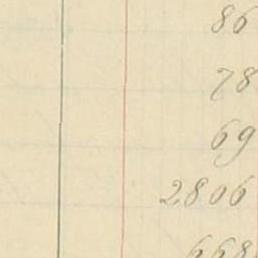 86
78
69
2806
668